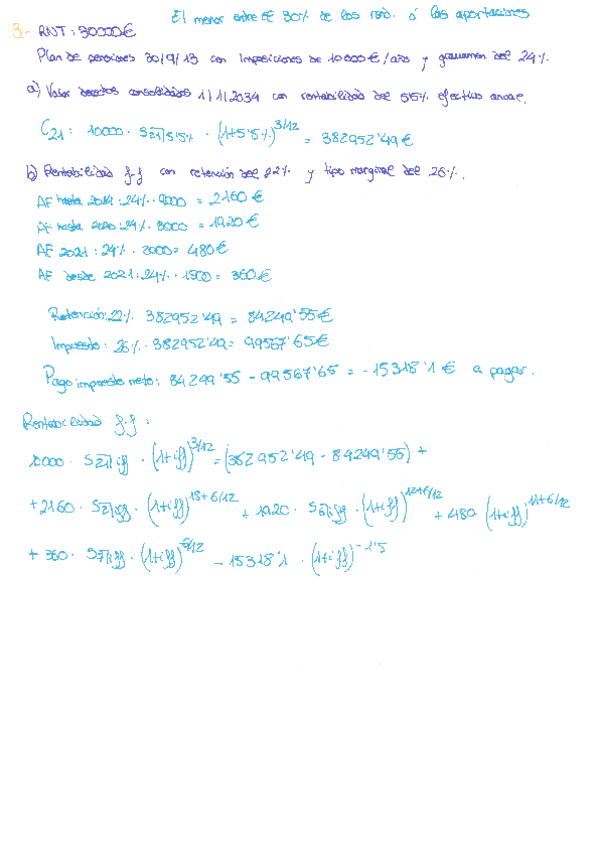 El menor entre el 30% de los rend. ó las aportaciones
3.- RNT: 30000€
Plan de pensiones 30/9/13 con imposiciones de 10000€/año y gravamen del 24%
a) Valor derechos consolidados 1/1/2034 con rentabilidad del 5'5% efectivo anual.
C21: 10000 · S21|5'5% · (1+5'5%)^3/12 = 382952'49€
b) Rentabilidad f-f con retención del 22% y tipo marginal del 26%.
AF hasta 2014: 24% · 9000 = 2160€
AF hasta 2020: 24% · 8000 = 1920€
AF 2021: 24% · 2000 = 480€
AF desde 2021: 24% · 1500 = 360€
Retención: 22% · 382952'49 = 84249'55€
Impuesto: 26% · 382952'49 = 99567'65€
Pago impuesto neto: 84249'55 - 99567'65 = -15318'1€ a pagar.
Rentabilidad f-f:
10000 · S21|iff · (1+iff)^3/12 = (382952'49 - 84249'55) +
+ 2160 · S2|iff · (1+iff)^18+6/12 + 1920 · S6|iff · (1+iff)^12+6/12 + 480 · (1+iff)^11+6/12
+ 360 · · (1+iff)^6/12 - 15318'1 · (1+iff)^-1'5